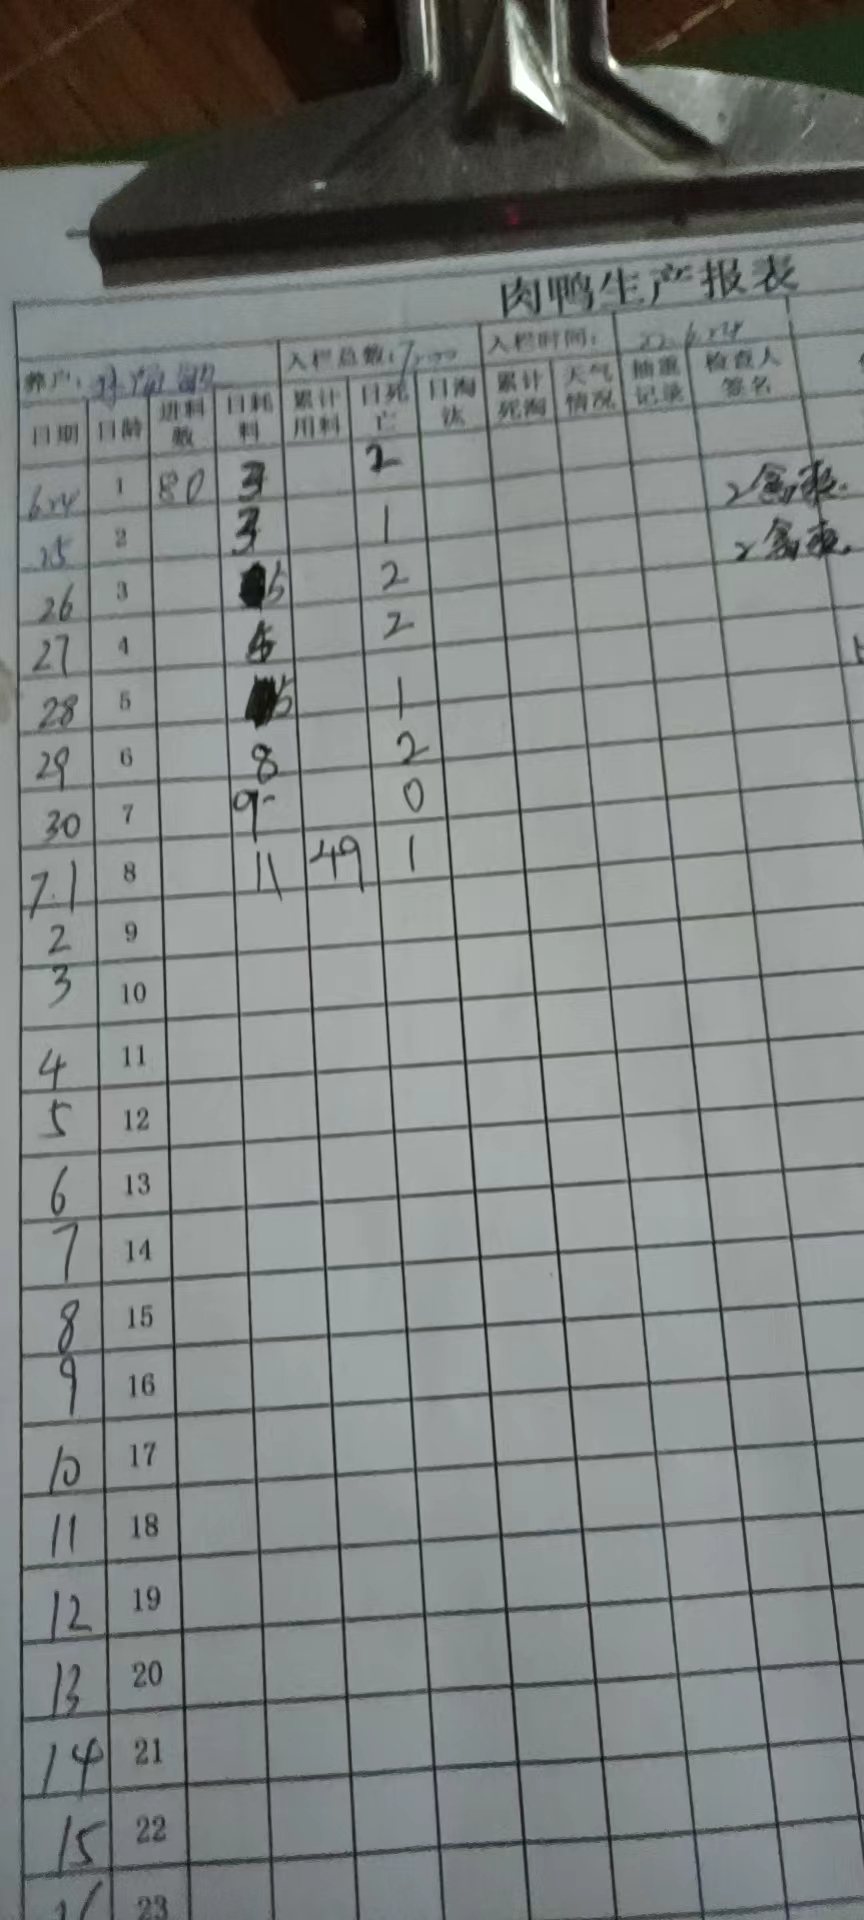 肉鸭生产报表
养户: 入栏总数:7,000 入栏时间: 22.6.24
日期 日龄 进料数 日耗料 累计用料 日死亡 日淘汰 累计死淘 天气情况 抽重记录 检查人签名
6.24 1 80 3 2
25 2 3 1
26 3 5 2
27 4 5 2
28 5 5 1
29 6 8 2
30 7 9 0
7.1 8 11 49 1
2 9
3 10
4 11
5 12
6 13
7 14
8 15
9 16
10 17
11 18
12 19
13 20
14 21
15 22
23